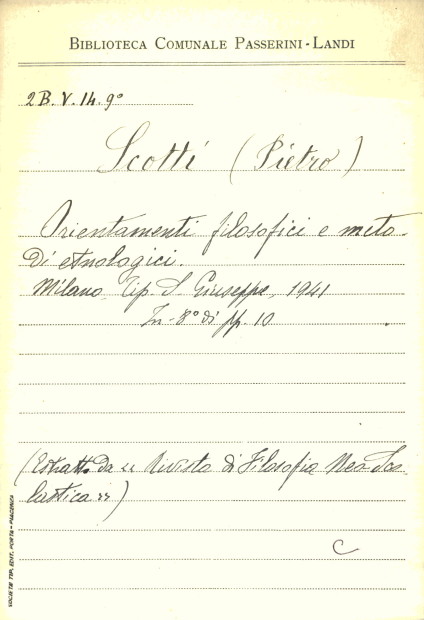 BIBLIOTECA COMUNALE PASSERINI-LANDI
2B. V. 14. 9º
Scotti (Pietro)
Orientamenti filosofici e meto-
di etnologici.
Milano, Tip. S. Giuseppe, 1941
In-8º di pp. 10
(Estratto da "Rivista di Filosofia Neo Sco
lastica")
C
SOCIETÀ TIP. EDIT. PORTA - PIACENZA